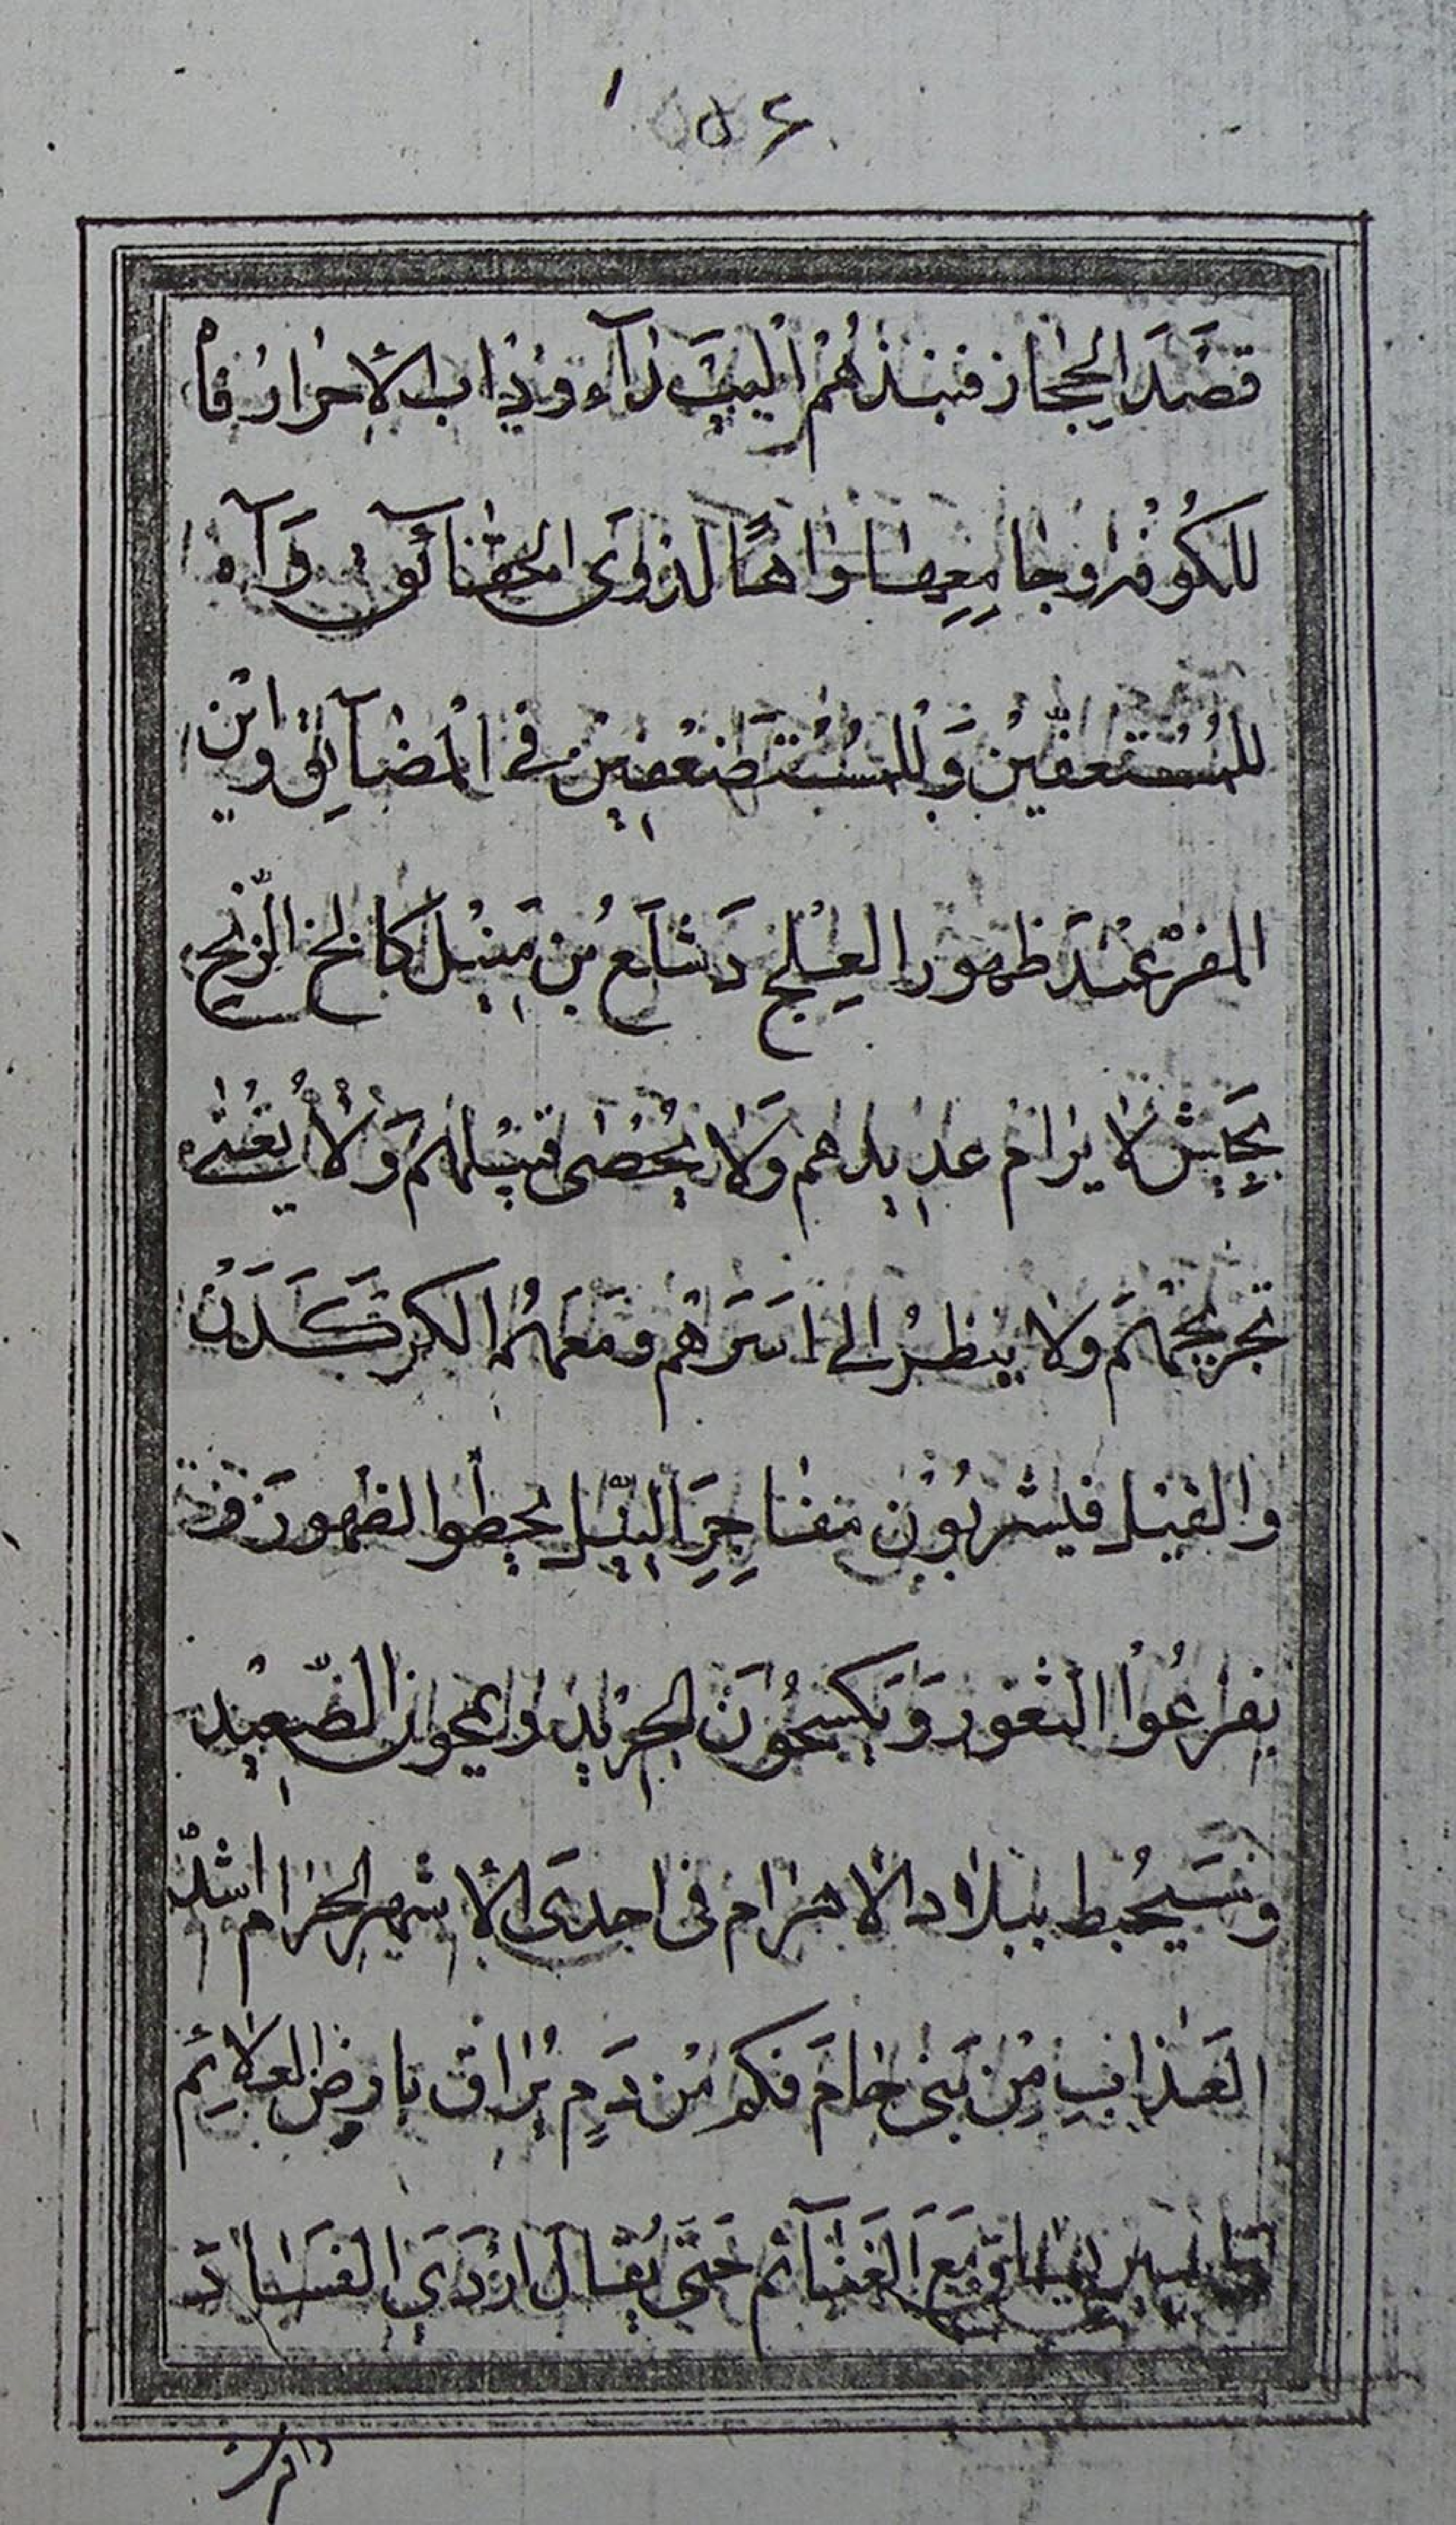 ٥٤
قصَدَ الحِجَاز فنبَذهُم البَيتَ زآء وذاب الأحرار فآه
للكُوفة وجامِعِها واهًا لذوَى الحقائق وَآه
للمُستعفّيْن وَللمُسْتَضعفِيْن في المضآيِق واين
المفرْ عِنْدَ ظهور العِلج دَشَاَعُ من مَنبِل كالخ الزّنج
بجَيْش لا يرام عديدهم وَلا يُحْصى قتيلهم وَلا يفُتى
جريحُهم ولا ينظرُ الى اسَرَاهُم ومَعَهُم الكركَدَنْ
والفيْل فيشربُون مفاجِرَ النِّيل يحطوا الظهور و
يفرعُوا الثغور وَيَكسحُونَ الجِزيد ويمحون الصّعِيْد
وسَيحُيط ببلاد الاهرام فى احدَى الأشهر الحرام اشدّ
العَذابِ مِنْ بَنى حَامَ فكم مْن دَمٍ يُراق بارض العلايم
يساق مَعَ الغَنآئم حَتى يُقالَ اردَى الفسَادَ